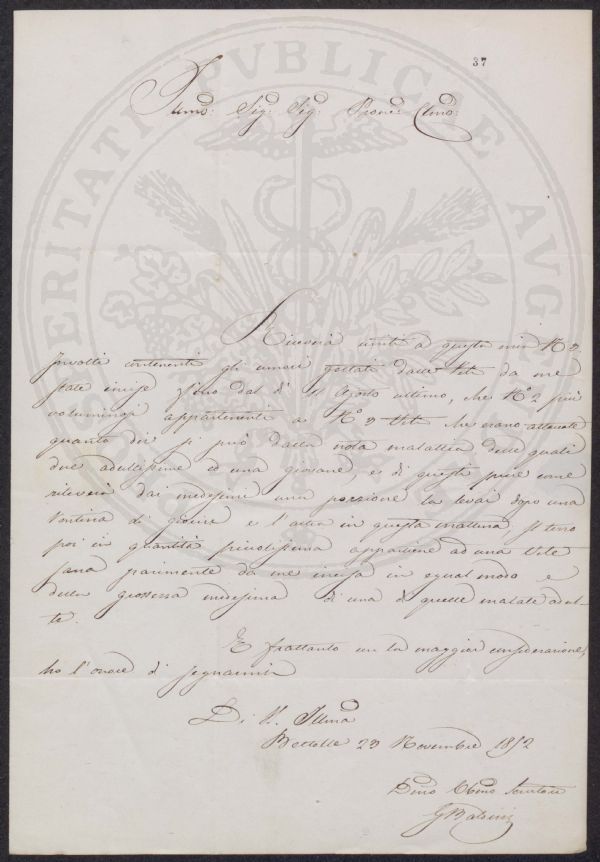 37
Illmo: Sig: Sig: Prone: Clmo:
Riceverà uniti a questa mia No 3
Involti contenenti gli umori gettati dalle Viti da me
state incise fino dal dì 11 Agosto ultimo, che No 2 più
voluminosi appartenenti a No 3 Viti che erano attaccate
quanto dir si può dalla nota malattia delle quali
due adultissime ed una giovane, e di queste pure come
rileverà dai medesimi una porzione la levai dopo una
Ventina di giorni e l'altra in questa mattina. Il terzo
poi in quantità piccolissima appartiene ad una Vite
sana parimente da me incisa in egual modo e
della grossezza medesima di una di quelle malate adul-
te.
E frattanto con la maggior considerazione,
ho l'onore di segnarmi
Di V. Illma
Bettolle 23 Novembre 1852
Dmo Obmo Servitore
PUBLICAE